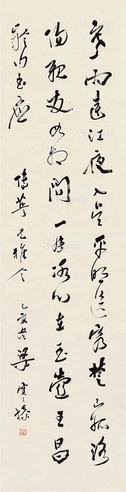 寒雨連江夜入吳平明送客楚山孤洛
陽親友如相問一片冰心在玉壺王昌
齡句書應
雅令
梁寒操